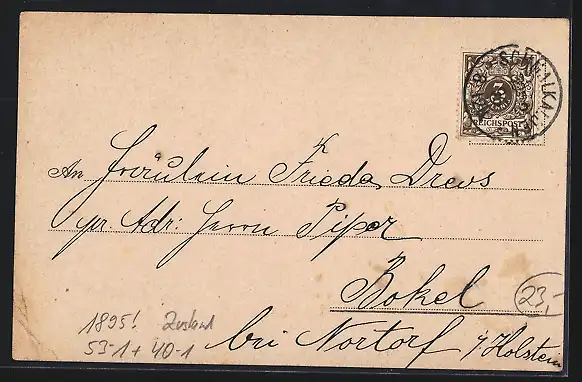 SCHMALKALDEN
3
REICHSPOST
An Fräulein Frieda Drews
pr. Adr: Herrn Piper
Bokel
23,-
bei Nortorf i/Holstein
1895! Zustand
53-1 + 40-1